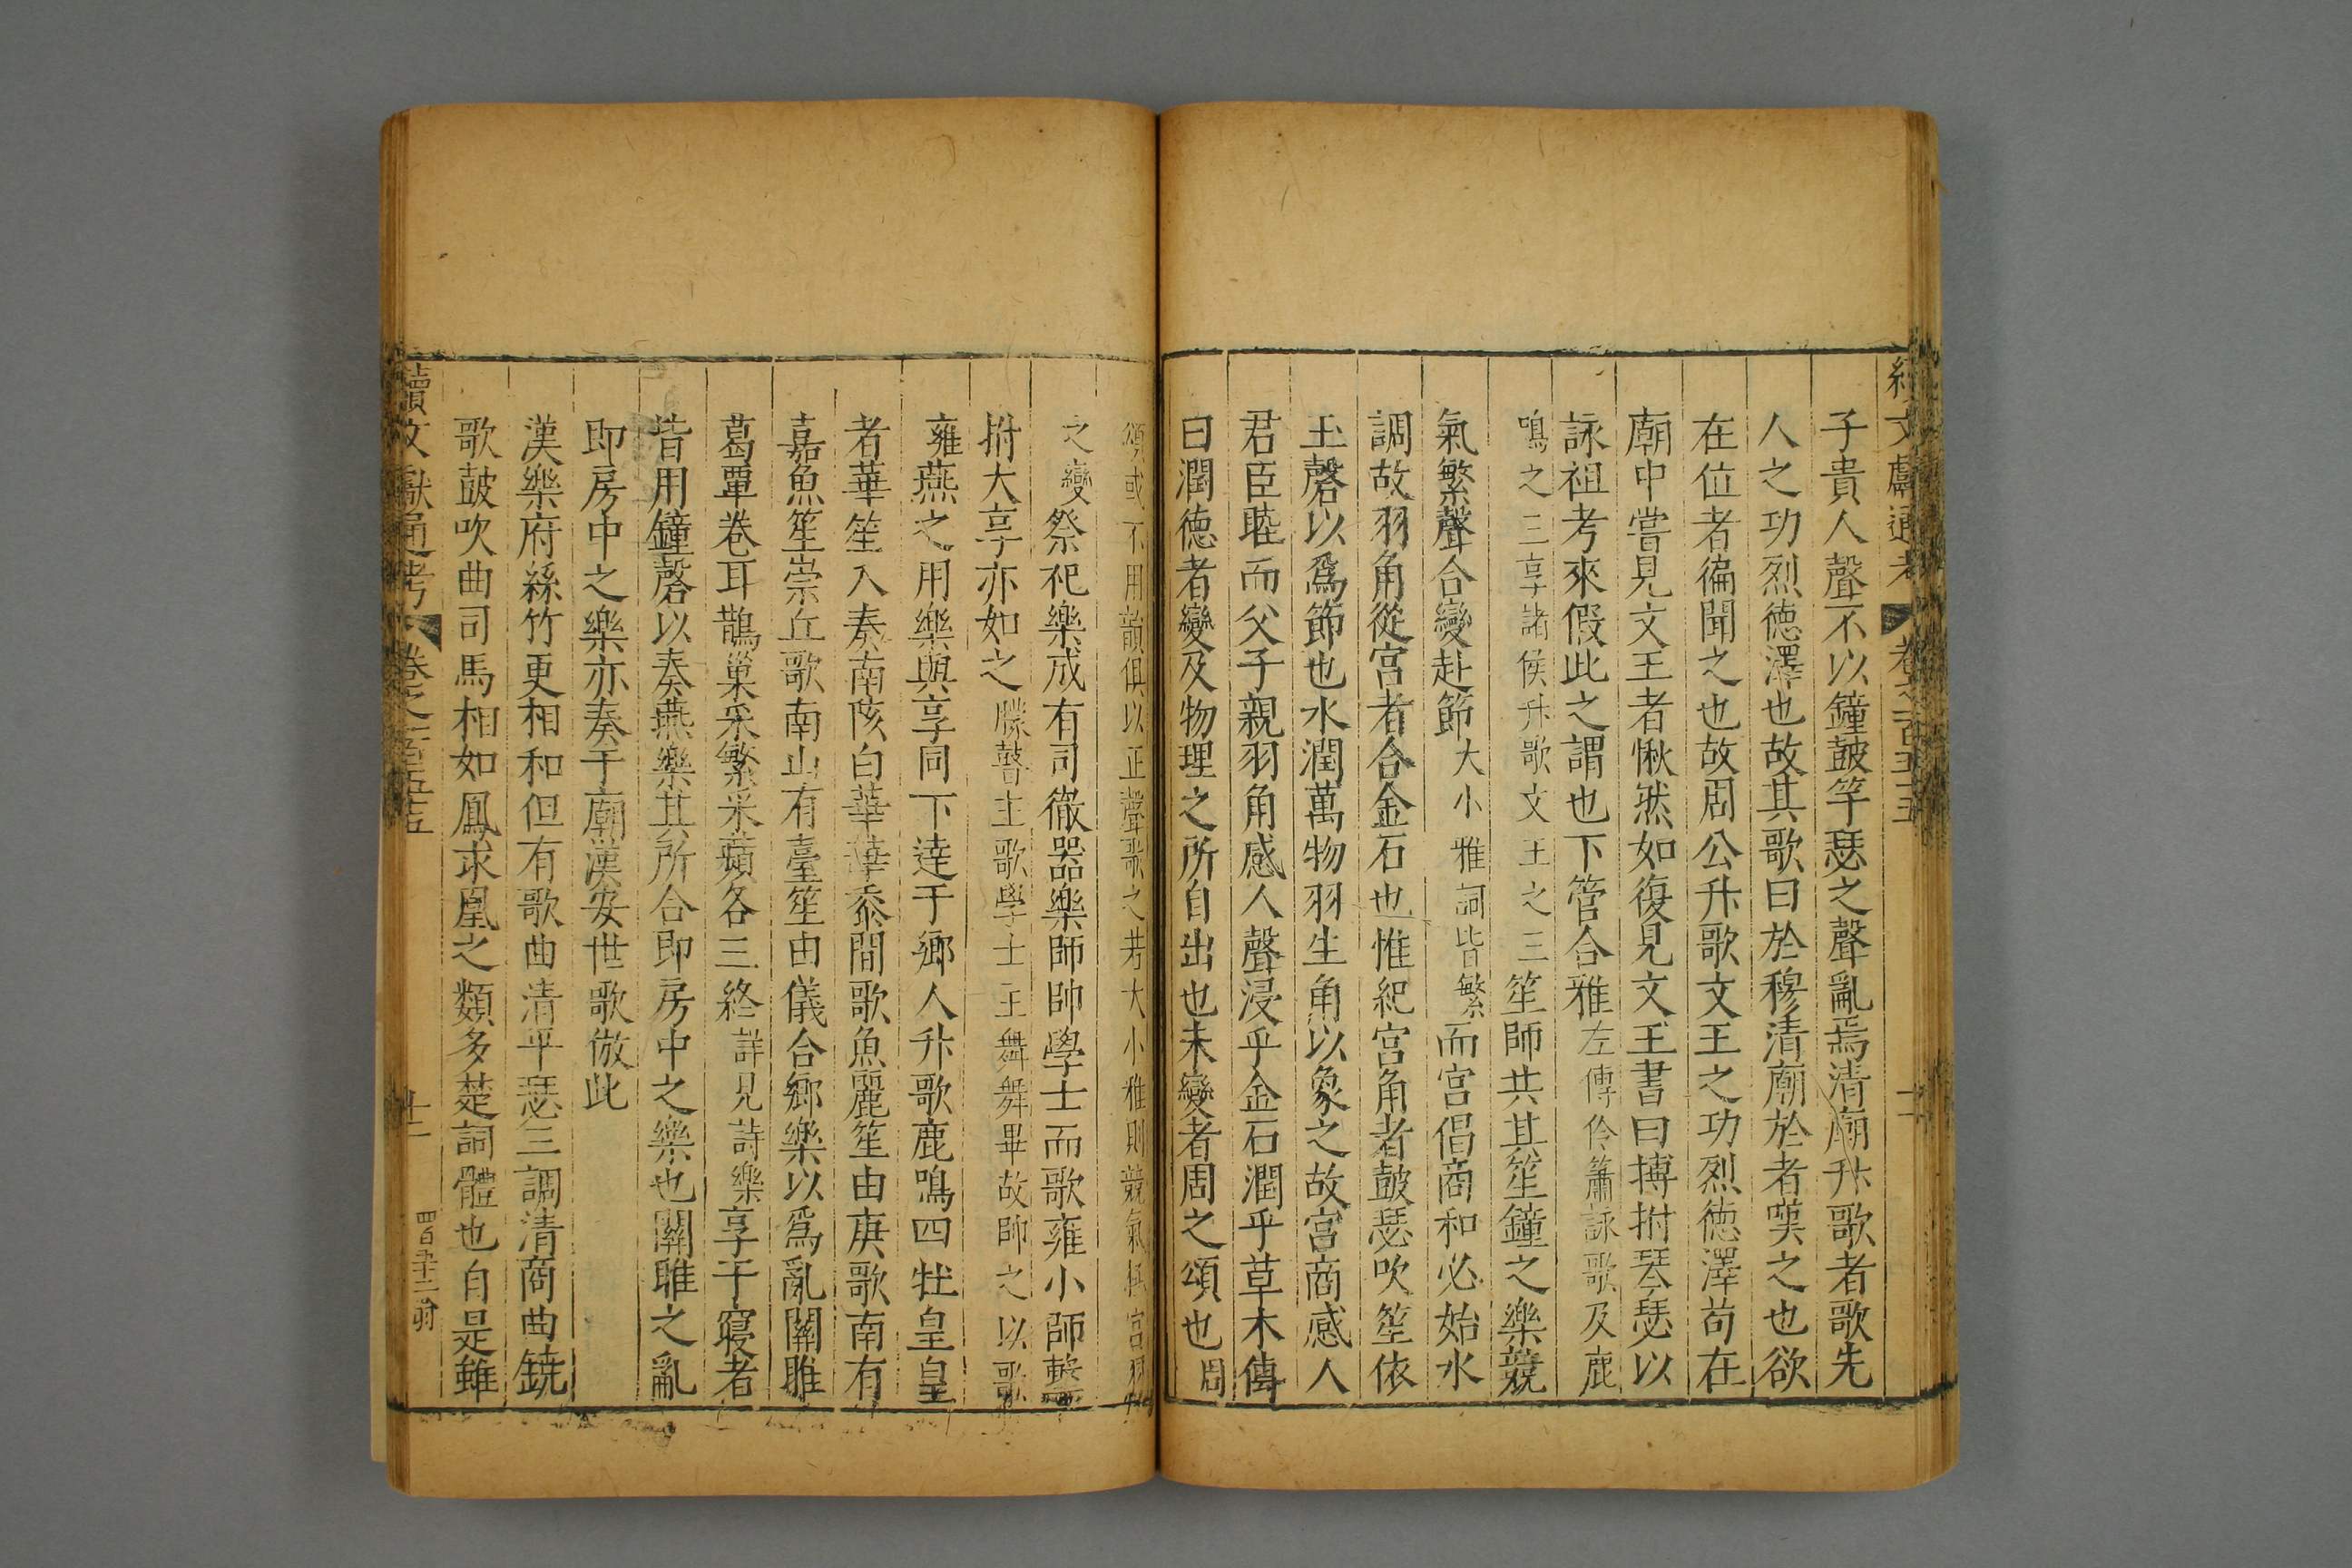 續文獻通考 卷之一百五十五 十一
子貴人聲不以鐘鼓竽瑟之聲亂焉清廟升歌者歌先
人之功烈德澤也故其歌曰於穆清廟於者嘆之也欲
在位者徧聞之也故周公升歌文王之功烈德澤苟在
廟中嘗見文王者愀然如復見文王書曰搏拊琴瑟以
詠祖考來假此之謂也下管合雅左傳伶簫詠歌及鹿
鳴之三享諸侯升歌文王之三笙師共其笙鐘之樂競
氣繁聲合變赴節大小雅詞皆繁而宮倡商和必始水
調故羽角從宮者合金石也惟紀宮角者鼓瑟吹笙依
玉磬以爲節也水潤萬物羽生角以象之故宮商感人
君臣睦而父子親羽角感人聲浸乎金石潤乎草木傳
曰潤德者變及物理之所自出也未變者周之頌也周
頌或不用韻俱以正聲歌之若大小雅則競氣極宮羽
之變祭祀樂成有司徹器樂師帥學士而歌雍小師擊
拊大享亦如之瞽主歌學士主舞舞畢故帥之以歌
雍燕之用樂與享同下達于鄉人升歌鹿鳴四牡皇皇
者華笙入奏南陔白華華黍間歌魚麗笙由庚歌南有
嘉魚笙崇丘歌南山有臺笙由儀合鄉樂以爲亂關雎
葛覃卷耳鵲巢采繁采蘋各三終詳見詩樂享于寢者
皆用鐘磬以奏燕樂其所合即房中之樂也關雎之亂
即房中之樂亦奏于廟漢安世歌倣此
漢樂府絲竹更相和但有歌曲清平瑟三調清商曲鐃
歌鼓吹曲司馬相如鳳求凰之類多楚詞體也自是雖
續文獻通考 卷之一百五十五 十二